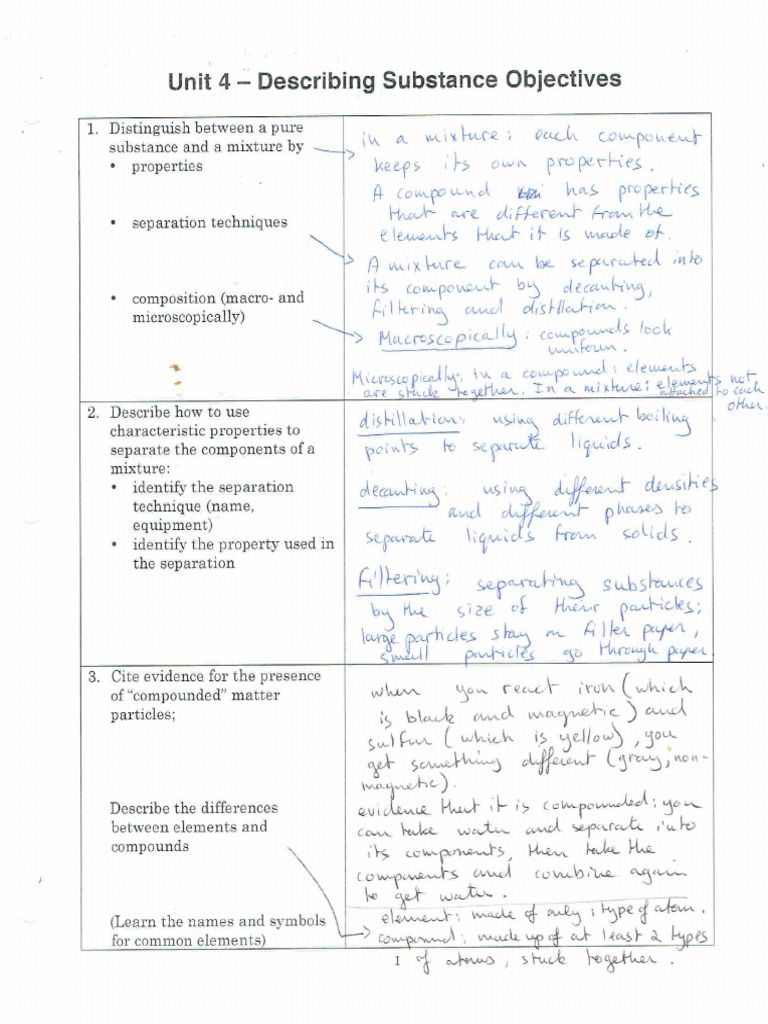 Unit 4 – Describing Substance Objectives
1. Distinguish between a pure
substance and a mixture by
• properties
• separation techniques
• composition (macro- and
microscopically)
in a mixture: each component
keeps its own properties.
A compound has properties
that are different from the
elements that it is made of.
A mixture can be separated into
its component by decanting,
filtering and distllation.
Macroscopically: compounds look
uniform.
Microscopically: in a compound: elements
are stuck together. In a mixture: elements not
attached to each
other.
2. Describe how to use
characteristic properties to
separate the components of a
mixture:
• identify the separation
technique (name,
equipment)
• identify the property used in
the separation
distillation: using different boiling
points to separate liquids.
decanting: using different densities
and different phases to
separate liquids from solids.
Filtering: separating substances
by the size of their particles;
large particles stay on filter paper,
small particles go through paper
3. Cite evidence for the presence
of "compounded" matter
particles;
Describe the differences
between elements and
compounds
(Learn the names and symbols
for common elements)
when you react iron (which
is black and magnetic) and
sulfur (which is yellow), you
get something different (gray, non-
magnetic).
evidence that it is compounded: you
can take water and separate into
its components, then take the
components and combine again
to get water.
element: made of only 1 type of atom.
compound: made up of at least 2 types
of atoms, stuck together.
1